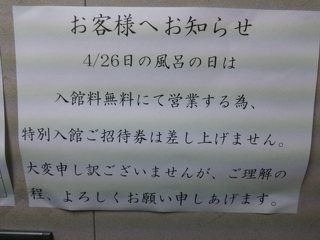 お客様へお知らせ
4/26日の風呂の日は
入館料無料にて営業する為、
特別入館ご招待券は差し上げません。
大変申し訳ございませんが、ご理解の
程、よろしくお願い申しあげます。